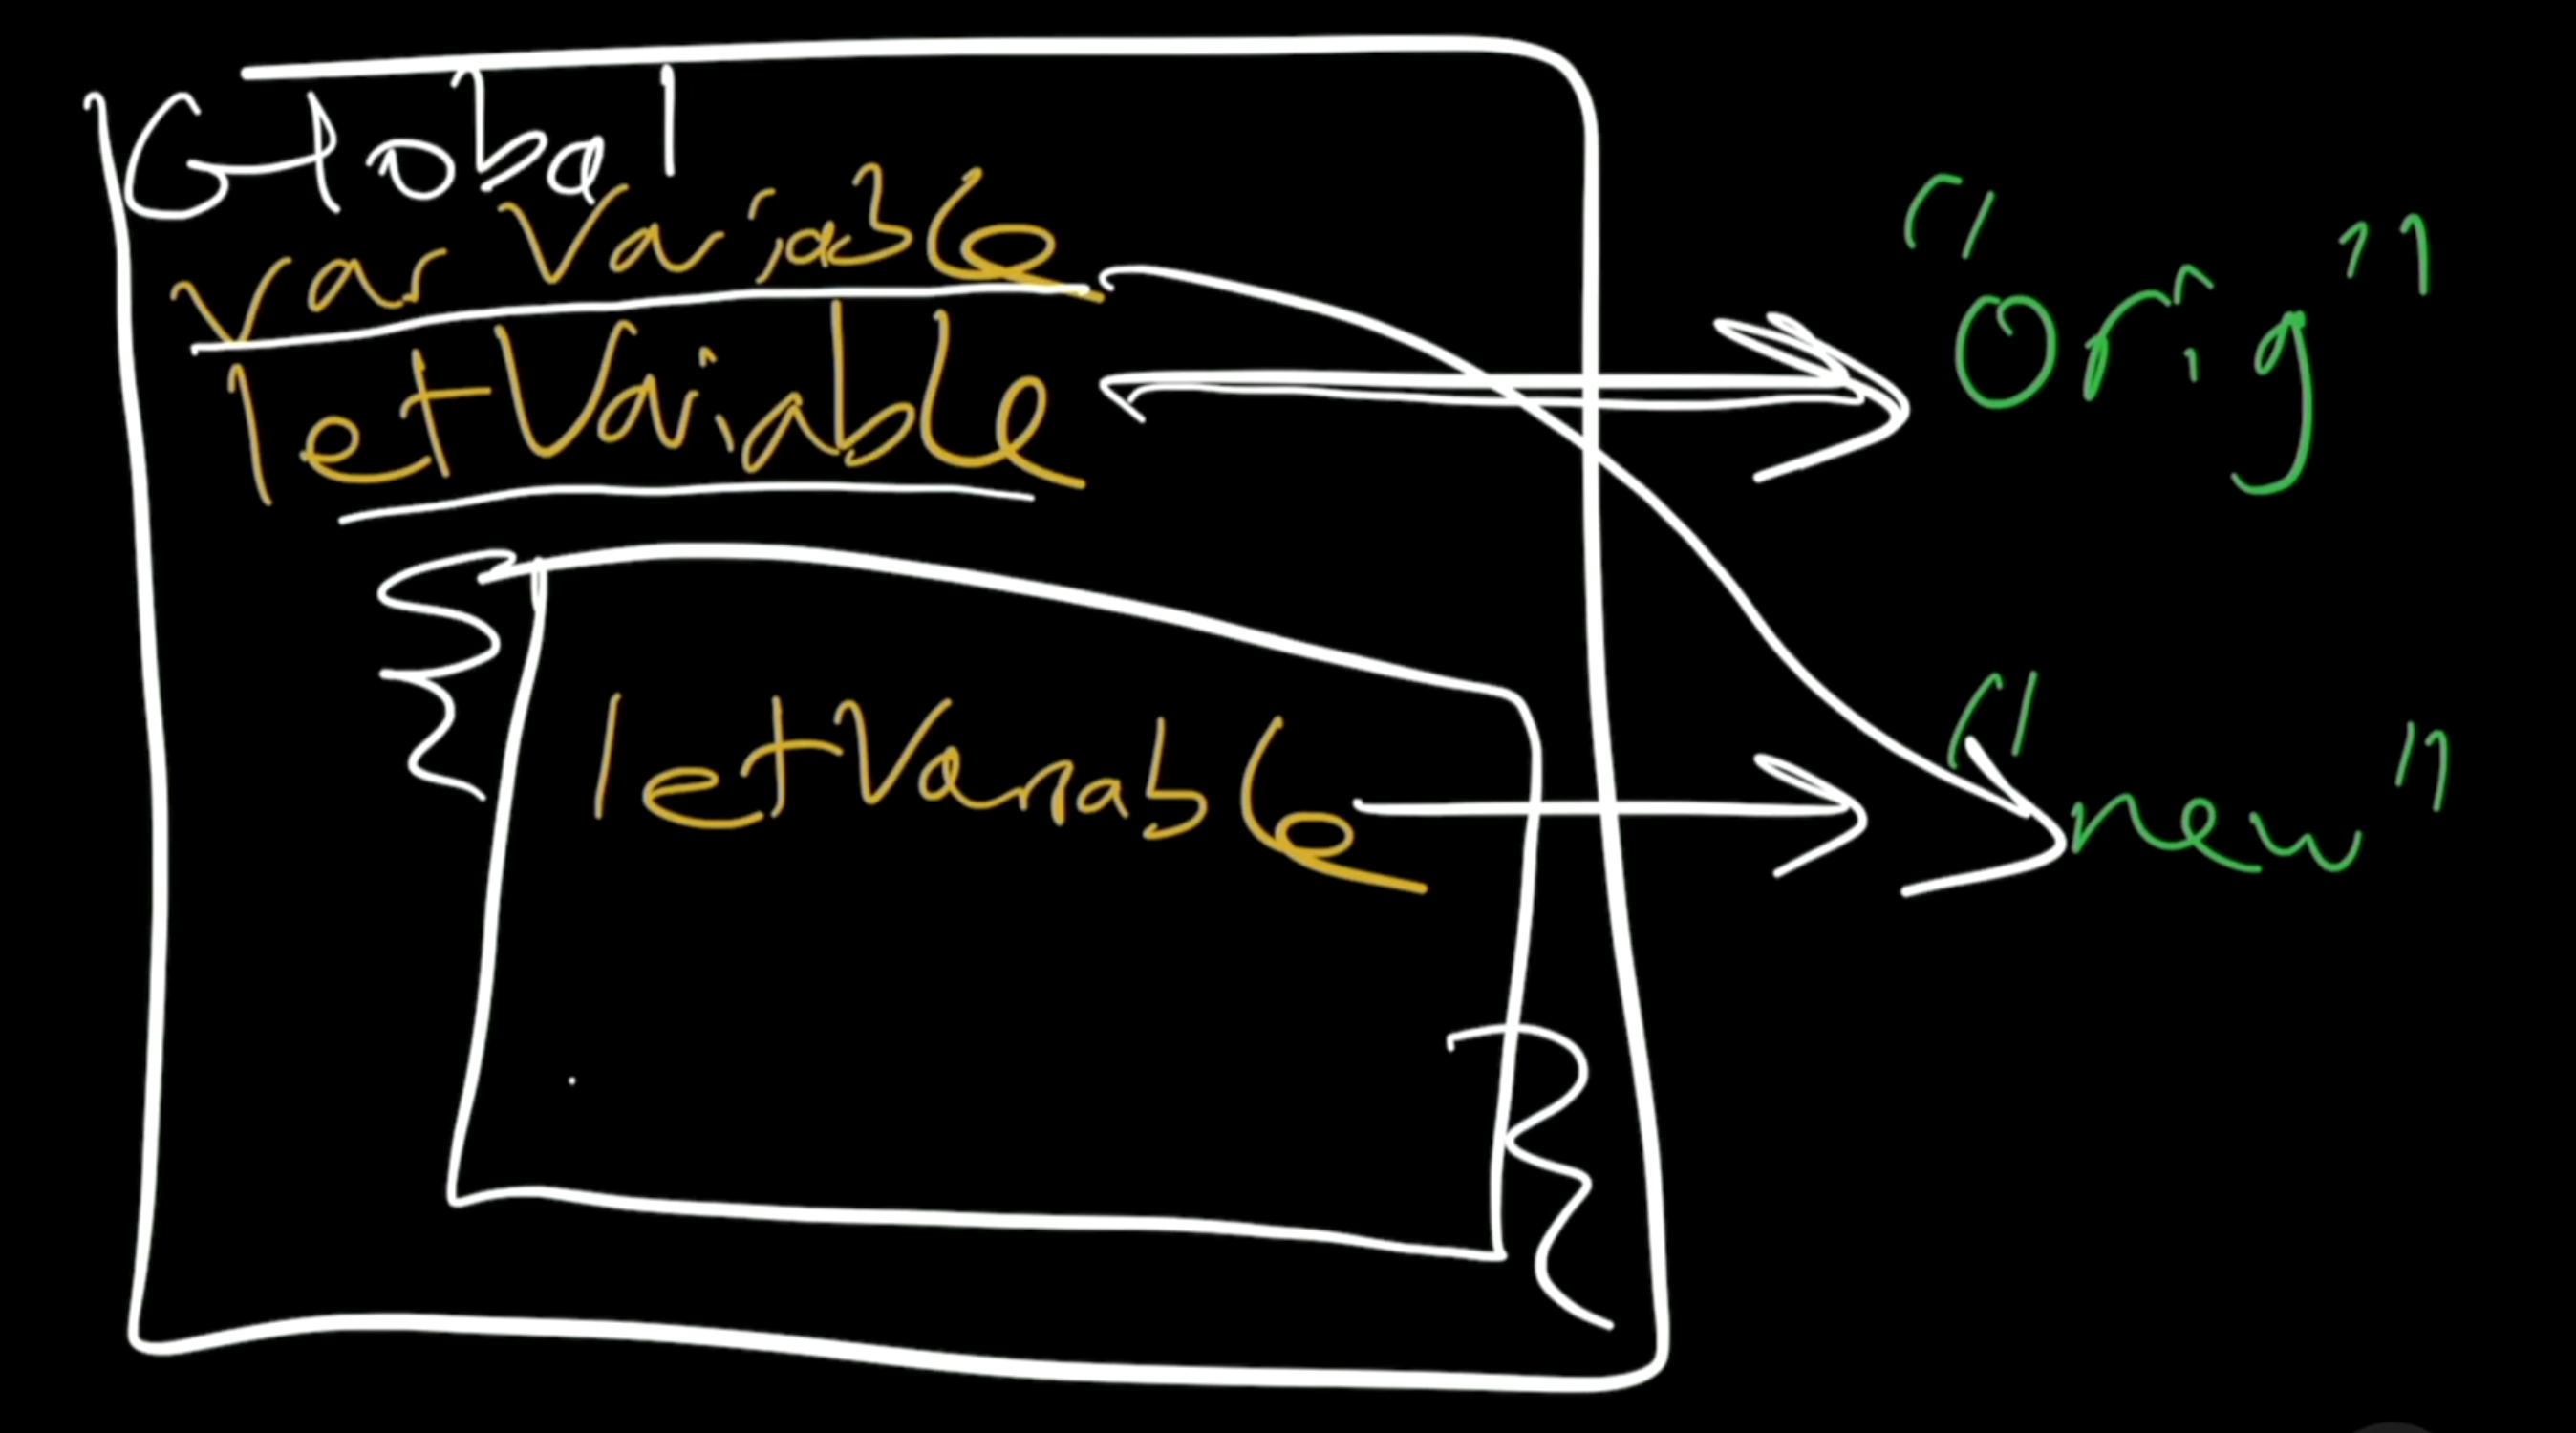 Global
varVariable
letVariable
"orig"
{
letVariable
"new"
}